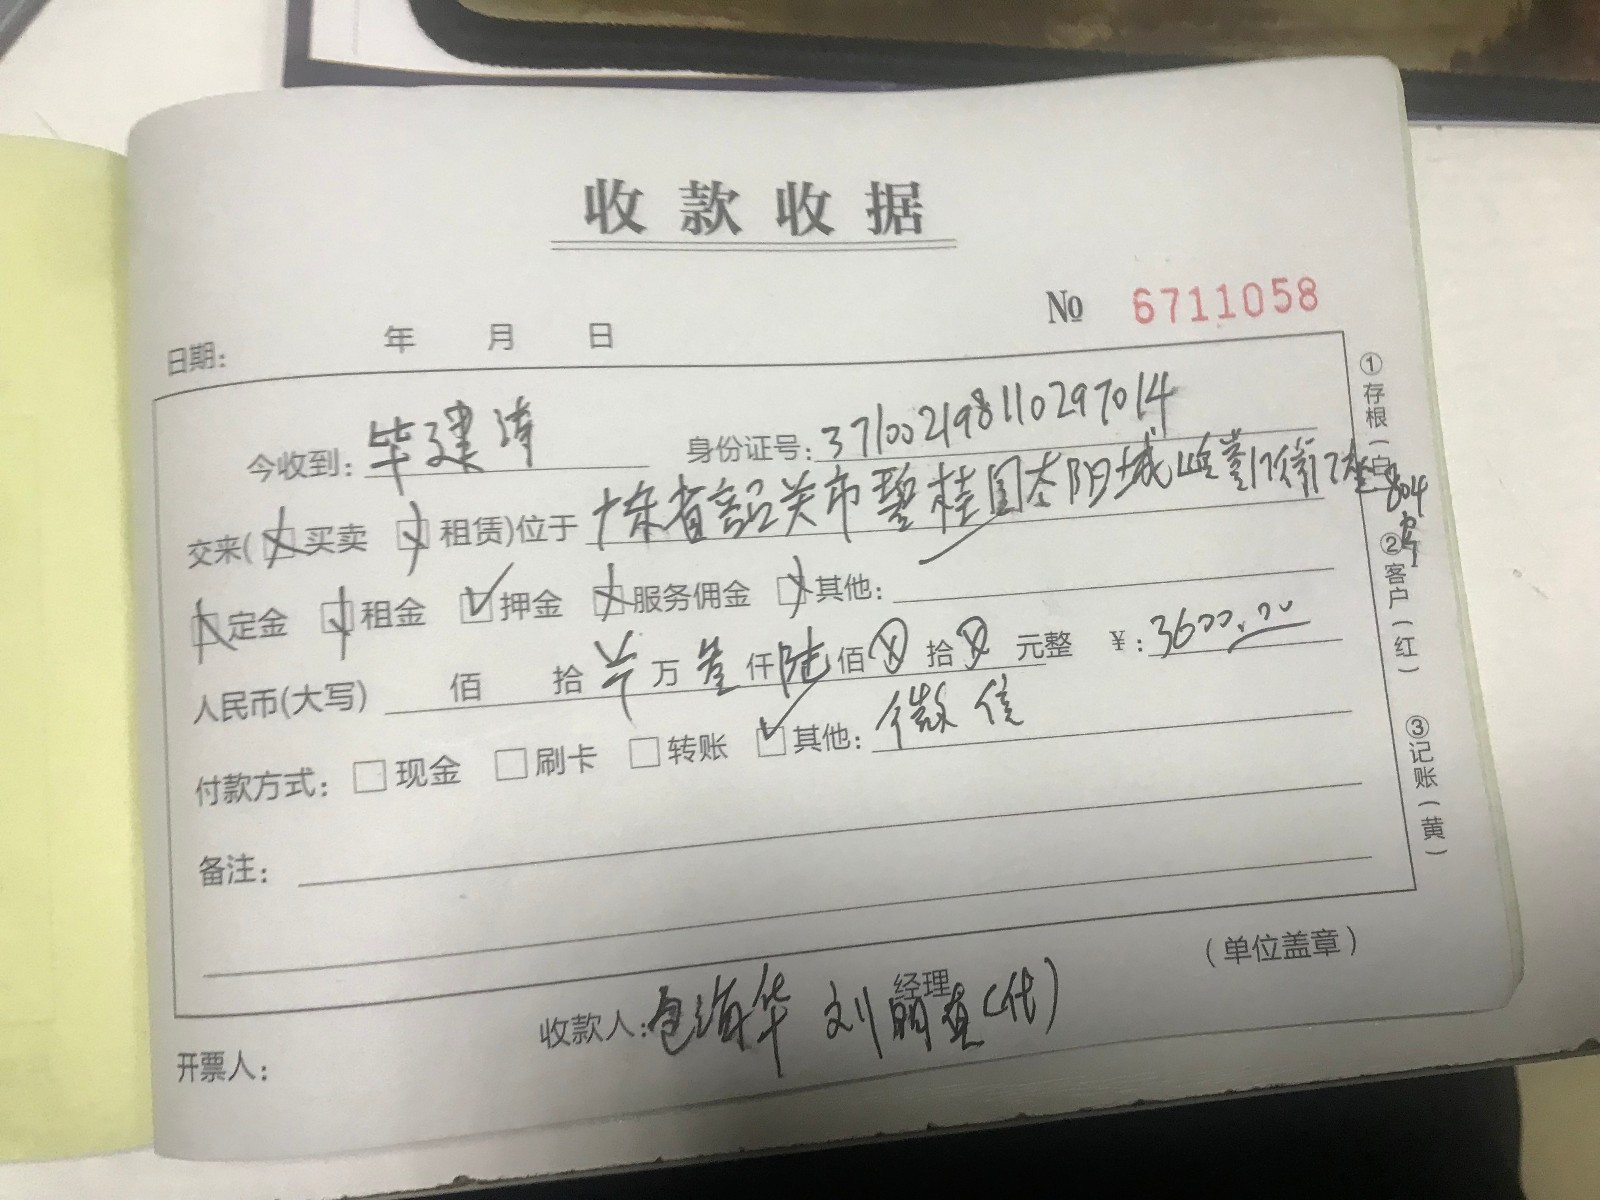 收款收据
№ 6711058
日期： 年 月 日
今收到：毕建涛 身份证号：371002198110297014
交来( 买卖 租赁)位于 广东省韶关市碧桂园太阳城 街 座804
定金 租金 押金 服务佣金 其他：
人民币(大写) 佰 拾 万 仟陆佰 拾 元整 ¥：3600.00
付款方式： 现金 刷卡 转账 其他：微信
备注：
(单位盖章)
收款人：包海华 经理 刘丽(代)
开票人：
①存根(白)
②客户(红)
③记账(黄)